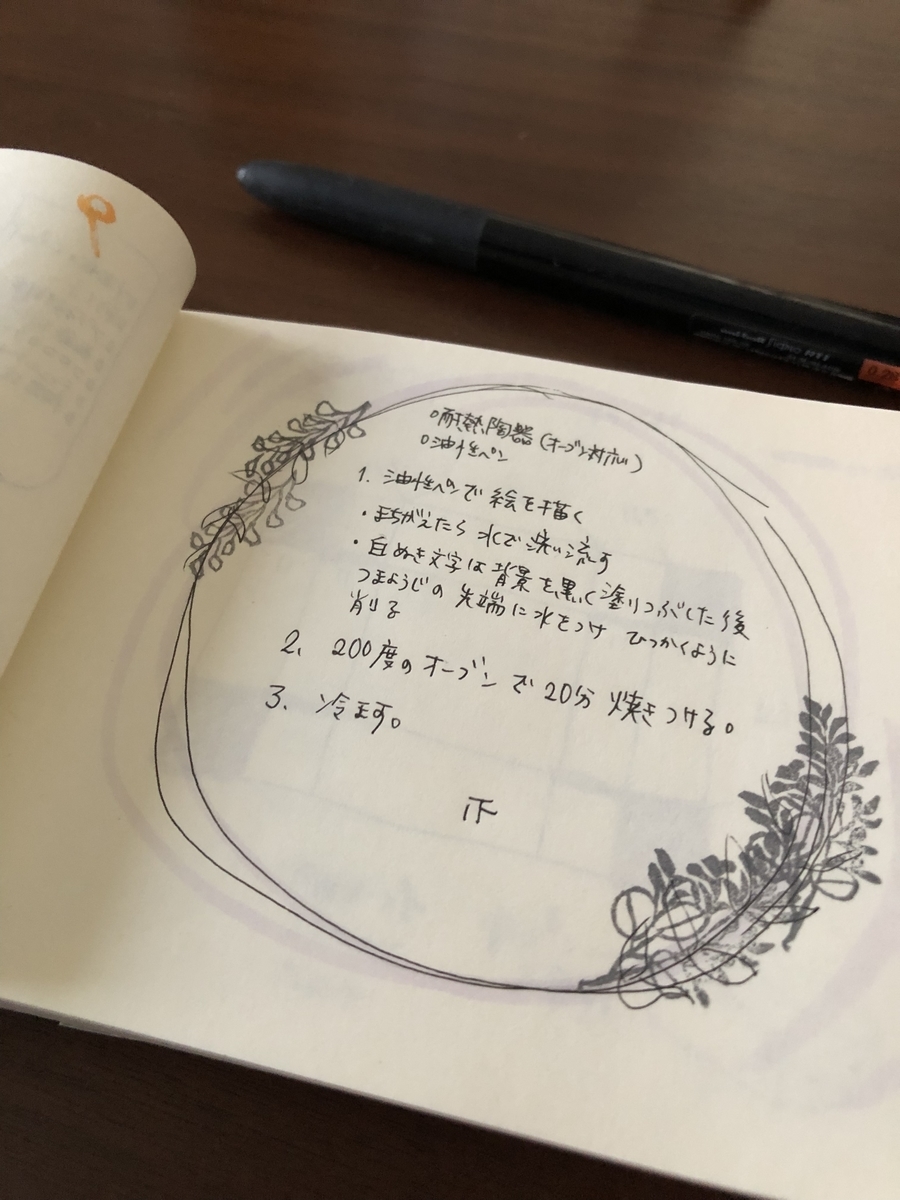 ○耐熱陶器(オーブン対応)
○油性ペン
1. 油性ペンで絵を描く
・まちがえたら水で洗い流す
・白ぬき文字は背景を黒く塗りつぶした後
つまようじの先端に水をつけ ひっかくように
削る
2. 200度のオーブンで20分 焼きつける。
3. 冷ます。